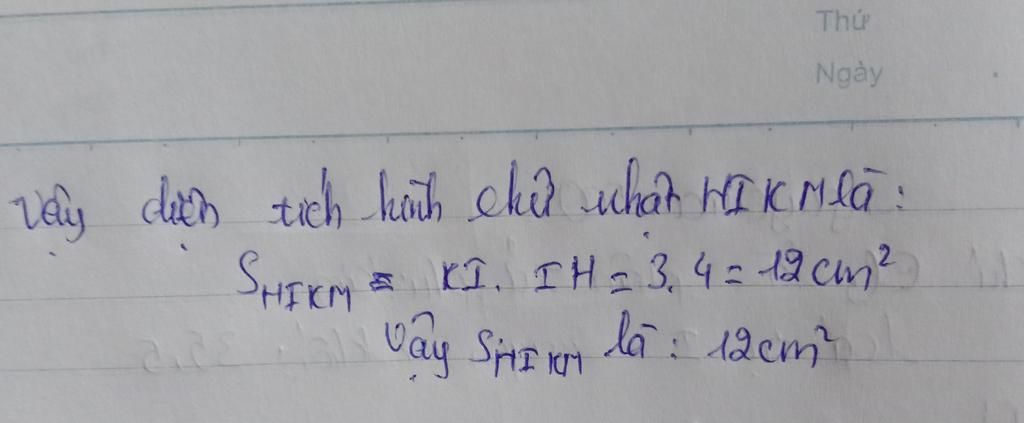 Thứ
Ngày
Vậy diện tích hình chữ nhật HIKM là:
S_HIKM = KI. IH = 3.4 = 12cm²
Vậy S_HIKM là: 12cm²